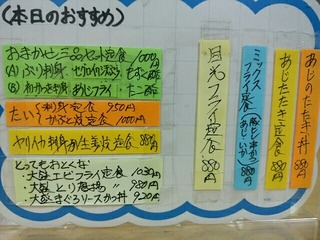 (本日のおすすめ)
おまかせ三品セット定食 1000円
(A) ぶり刺身
(B) わかさぎ刺身 あじフライ
たい 刺身定食 950円
かぶと煮定食 1000円
ヤリイカ刺身 生姜焼定食 880円
とってもおとくな
・大盛エビフライ定食 1030円
・大盛とり唐揚〃 980円
・大盛まぐろソースカツ丼 920円
目光フライ定食 880円
ミックスフライ定食 あじ いか 880円
あじたたき定食 880円
あじたたき丼 850円